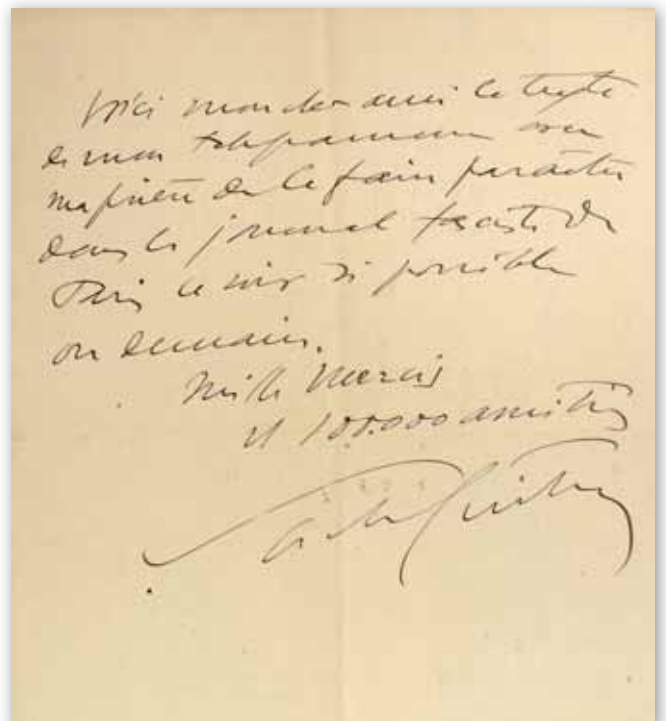 Voici mon cher ami le texte
de mon telegramme avec
ma prière de le faire paraitre
dans le journal de
Paris ce soir si possible
ou demain.
Mille Mercis
et 100.000 amitiés
Sacha Guitry